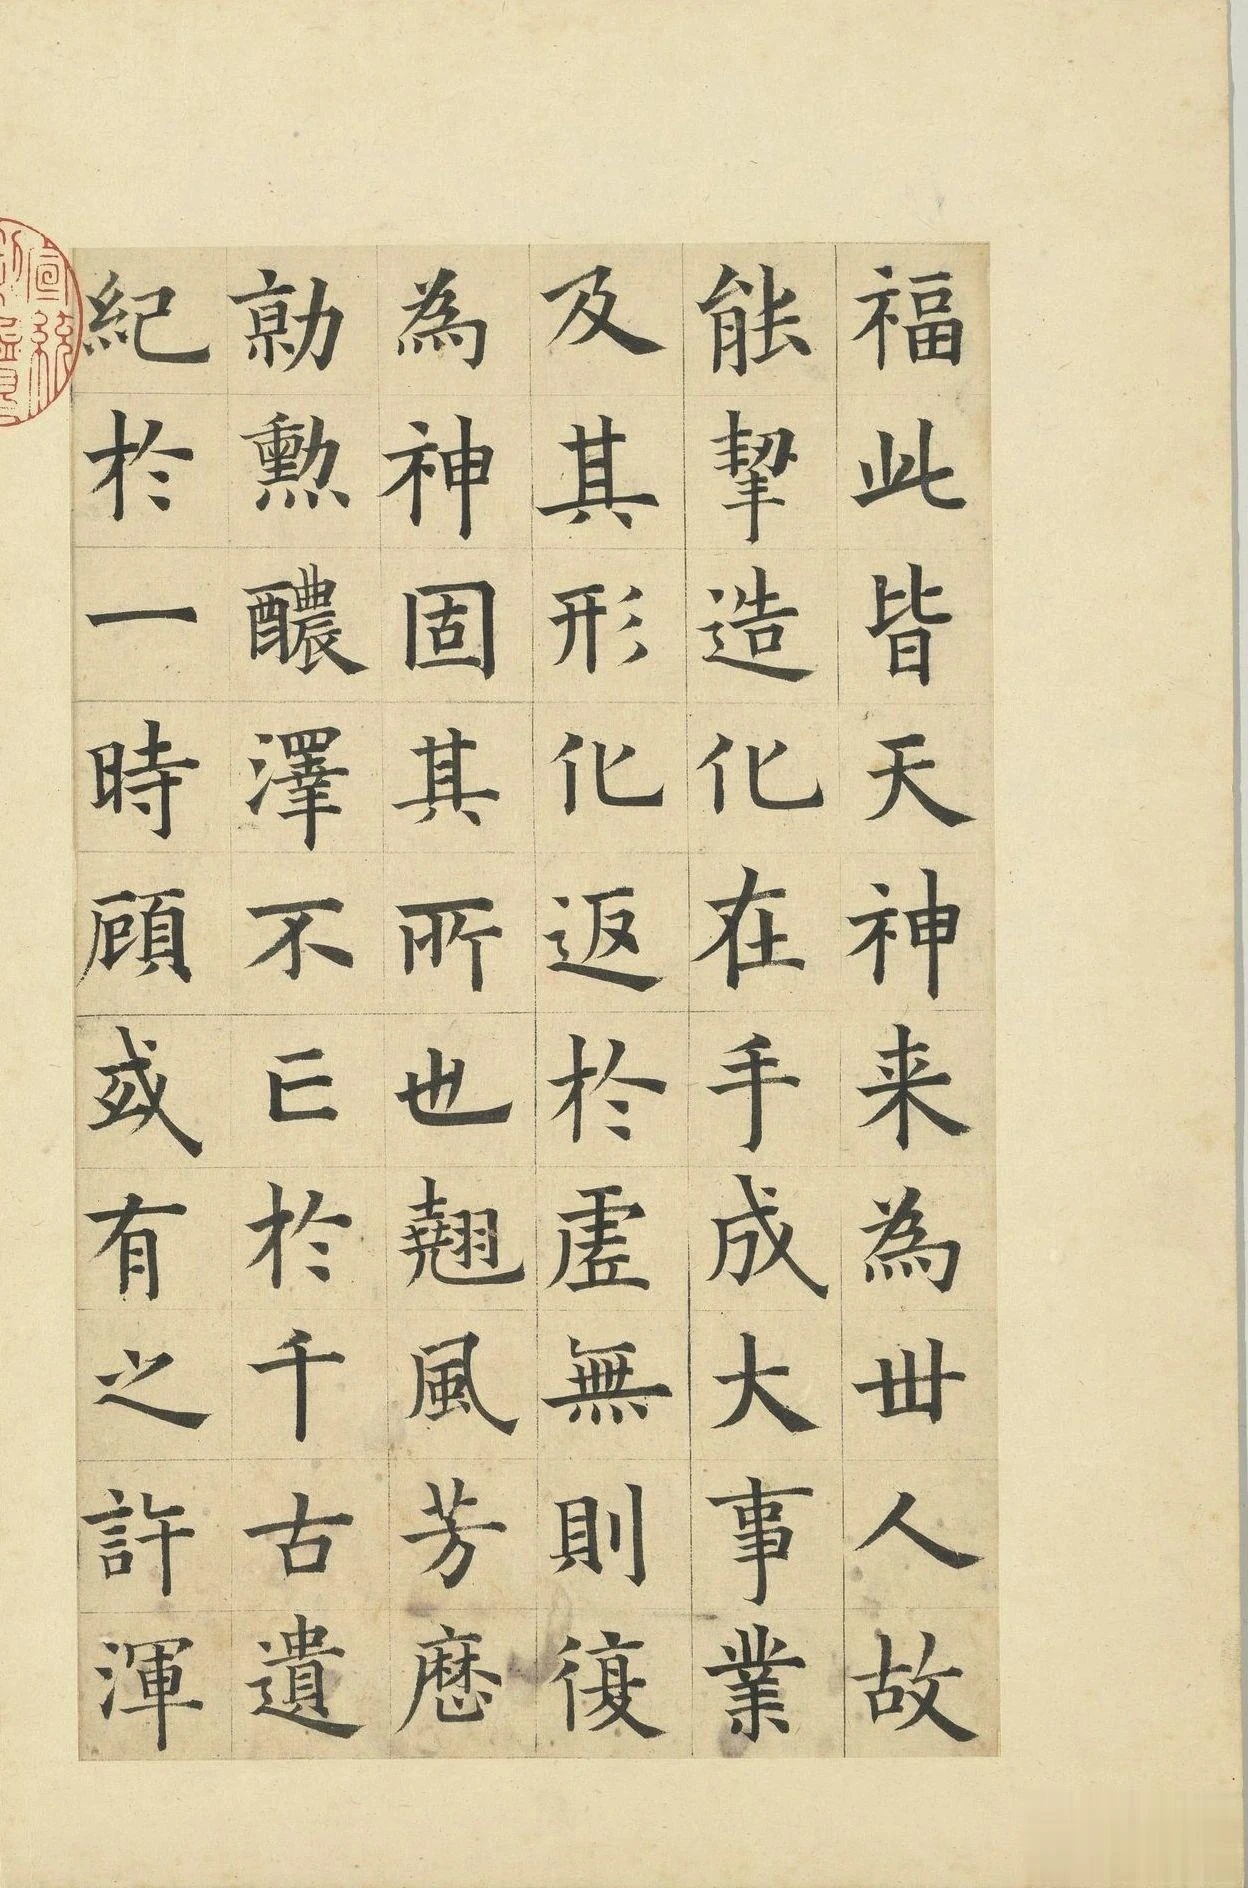 福此皆天神来為丗人故
能挈造化在手成大事業
及其形化返於虚無則復
為神固其所也翹風芳歴
勍勲醲澤不已於千古遺
紀於一時顧或有之許渾